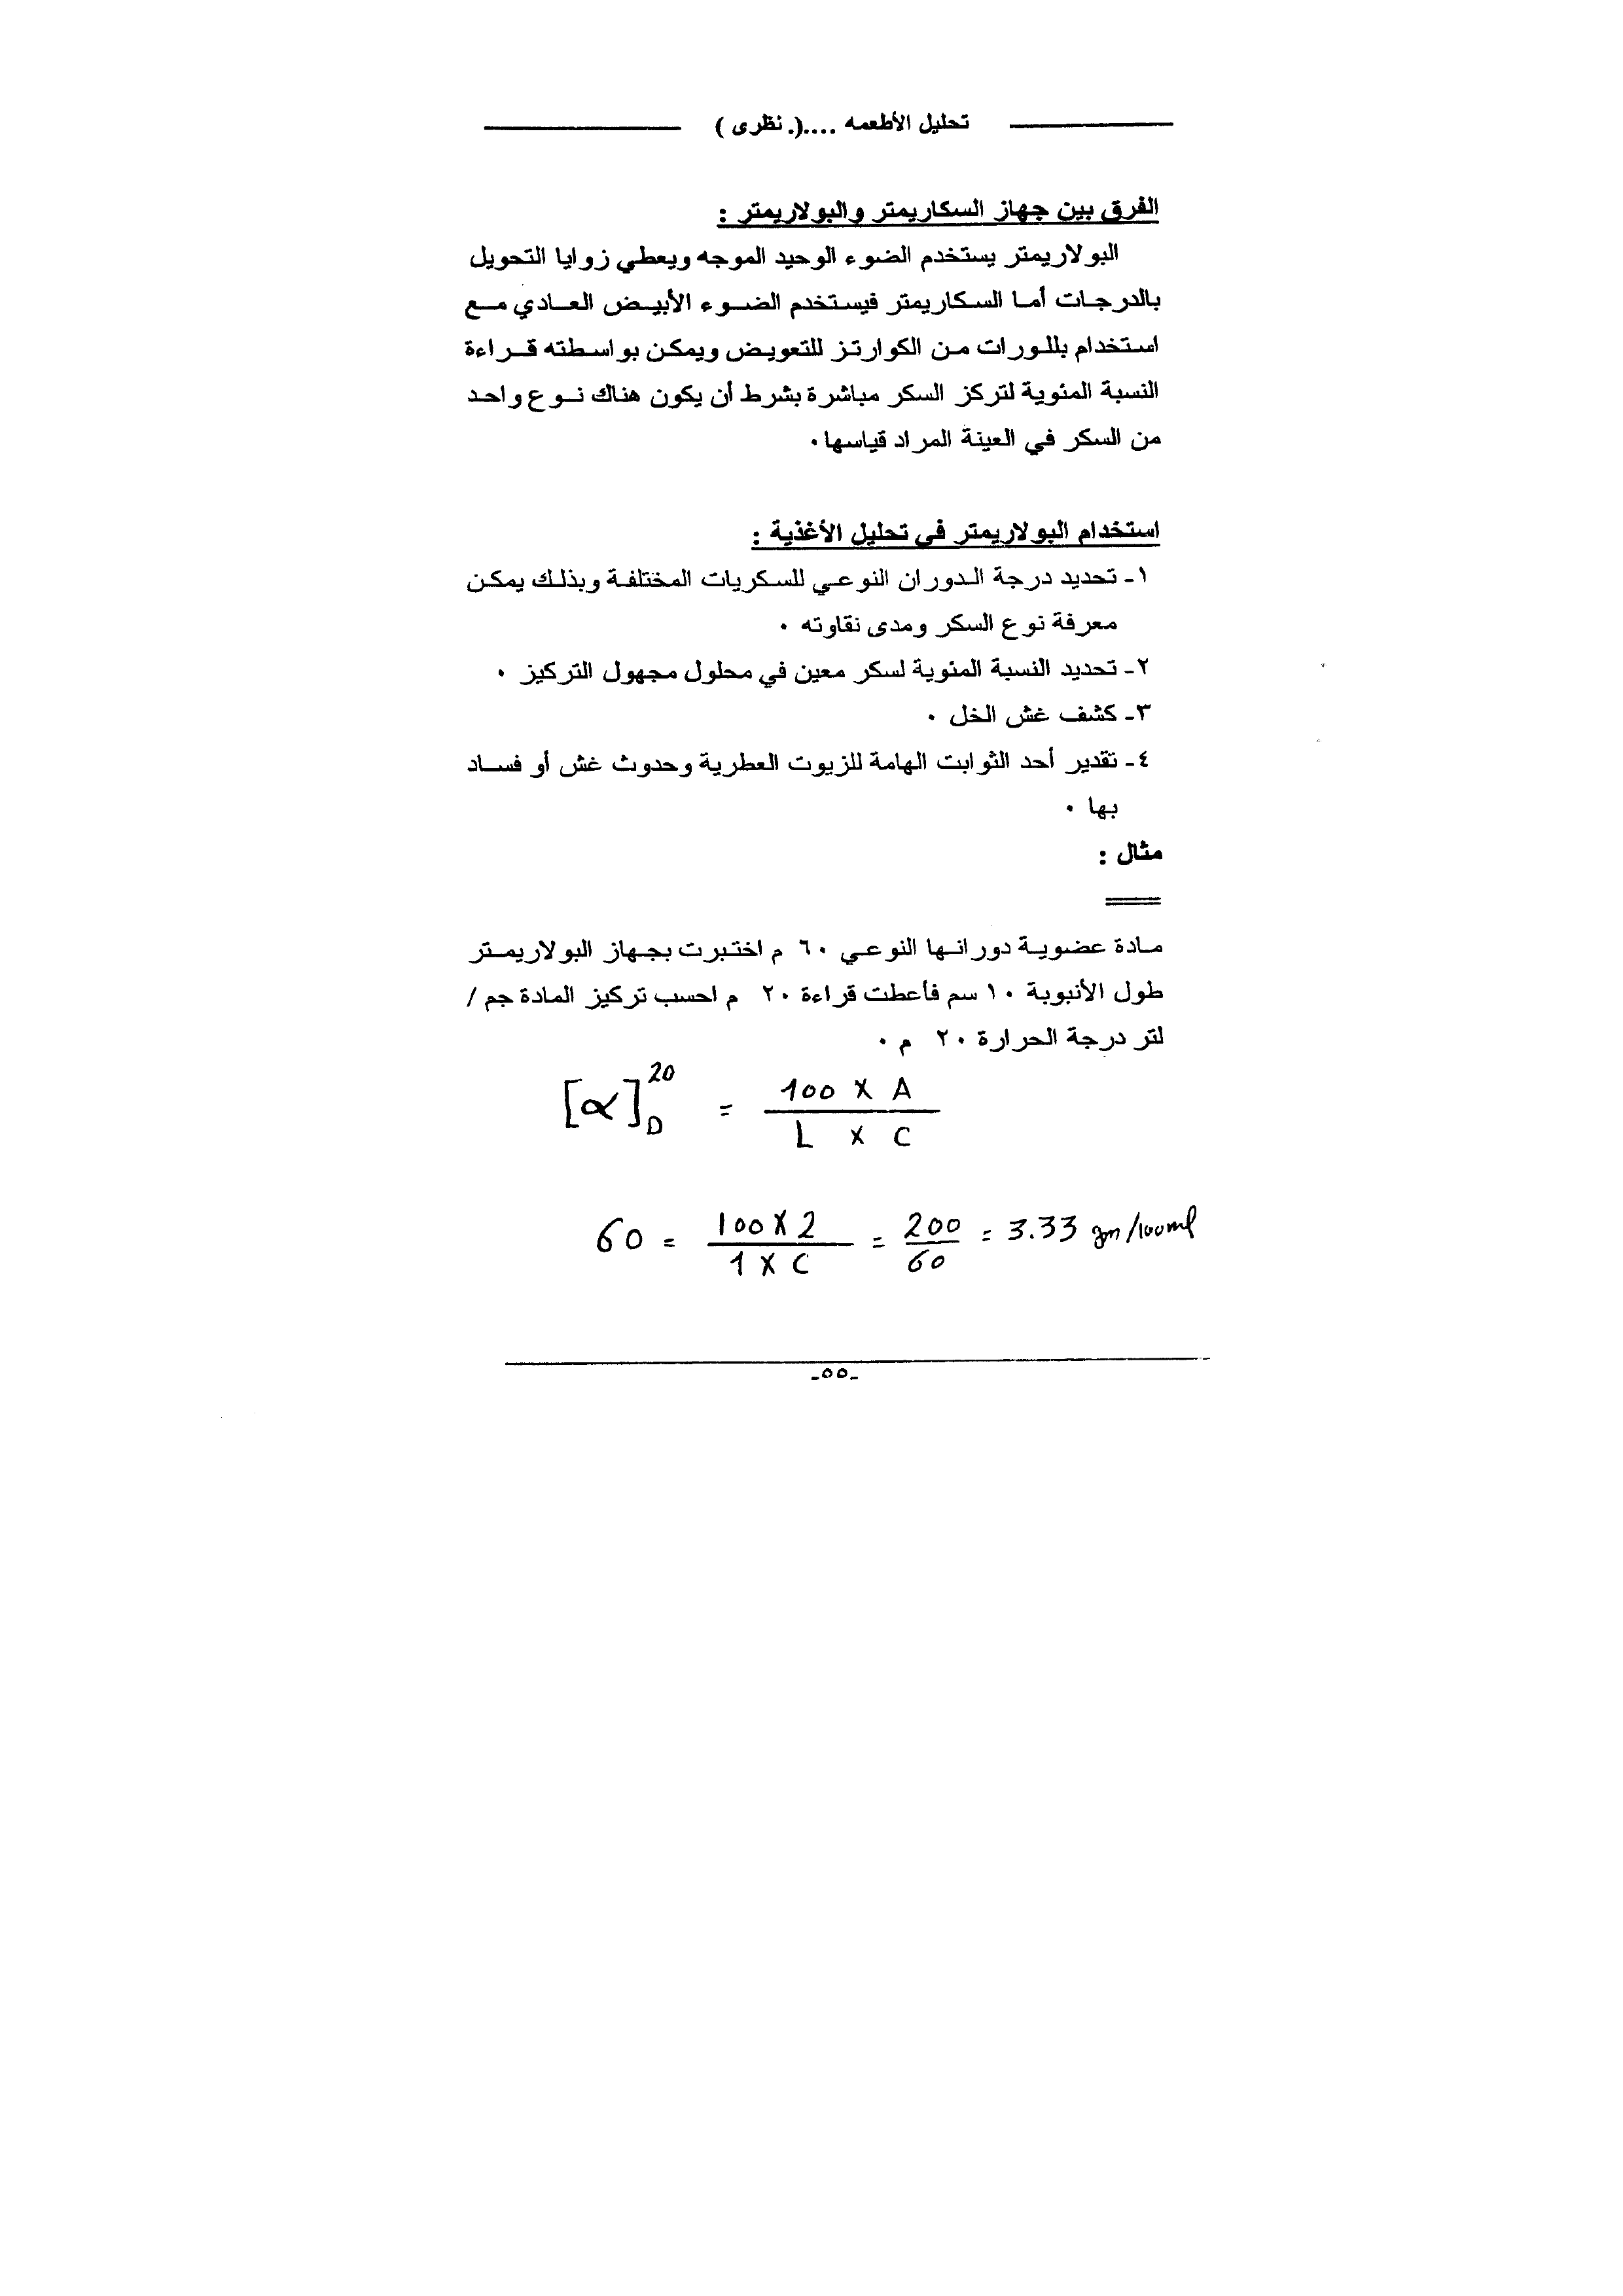 تحليل الأطعمه ....(. نظرى )
الفرق بين جهاز السكاريمتر والبولاريمتر :
البولاريمتر يستخدم الضوء الوحيد الموجه ويعطي زوايا التحويل
بالدرجات أما السكاريمتر فيستخدم الضوء الأبيض العادي مع
استخدام بللورات من الكوارتز للتعويض ويمكن بواسطته قراءة
النسبة المئوية لتركز السكر مباشرة بشرط أن يكون هناك نوع واحد
من السكر في العينة المراد قياسها٠
استخدام البولاريمتر في تحليل الأغذية :
١- تحديد درجة الدوران النوعي للسكريات المختلفة وبذلك يمكن
معرفة نوع السكر ومدى نقاوته ٠
٢- تحديد النسبة المئوية لسكر معين في محلول مجهول التركيز ٠
٣- كشف غش الخل ٠
٤- تقدير أحد الثوابت الهامة للزيوت العطرية وحدوث غش أو فساد
بها ٠
مثال :
مادة عضوية دورانها النوعي ٦٠ م اختبرت بجهاز البولاريمتر
طول الأنبوبة ١٠ سم فأعطت قراءة ٢٠ م احسب تركيز المادة جم /
لتر درجة الحرارة ٢٠ م ٠
[α]_D^20 = (100 X A) / (L X C)
60 = (100 X 2) / (1 X C) = 200/60 = 3.33 gm/100ml
-٥٥-